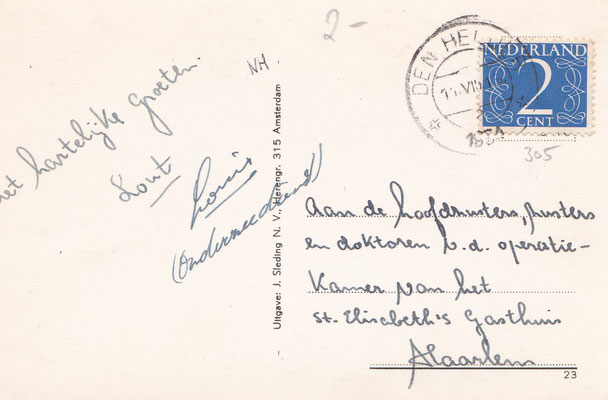 2-
NH
DEN HELDER
NEDERLAND
2
CENT
305
met hartelijke groeten
Lout
Louis
(onder
Uitgave: J. Sleding N. V., Herengr. 315 Amsterdam
Aan de hoofdzusters, zusters
en doktoren v.d. operatie-
Kamer van het
St. Elisabeth's Gasthuis
Haarlem
23